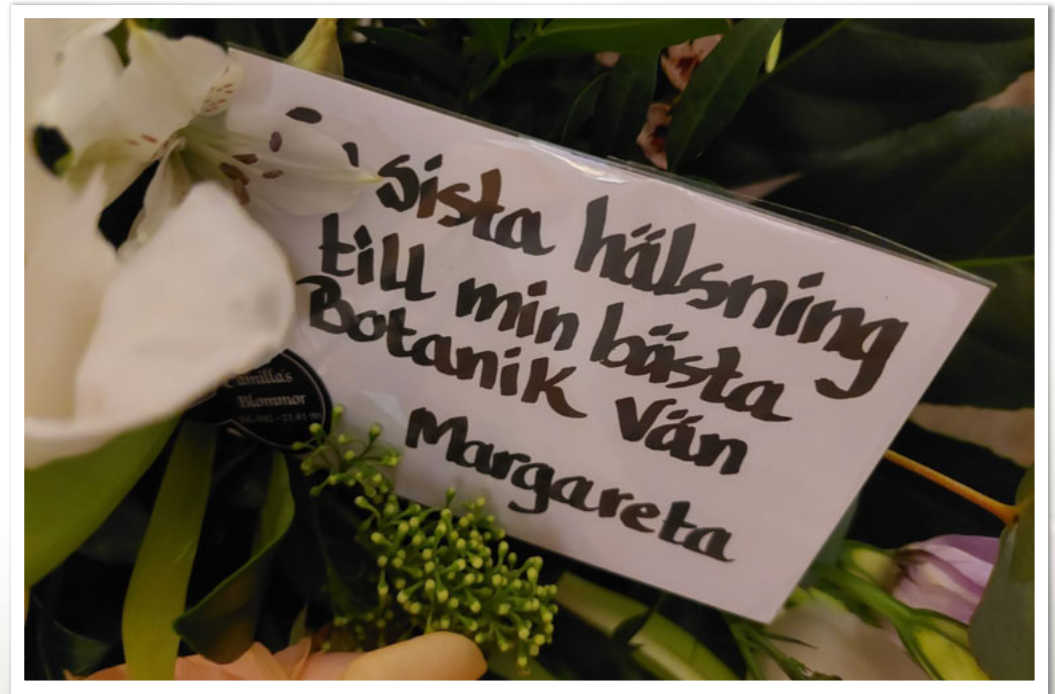 Sista hälsning
till min bästa
Botanik Vän
Margareta
Camilla's
Blommor